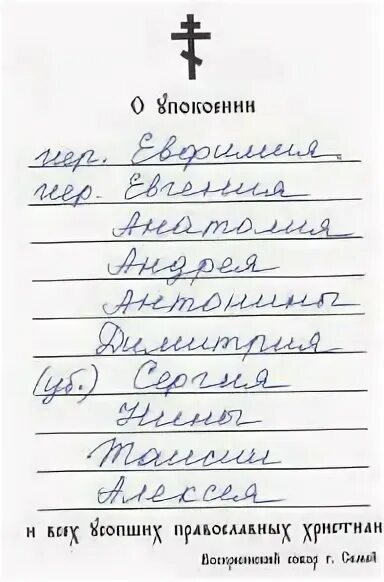 О упокоении
иер. Евфимия.
иер. Евгения
Анатолия
Андрея
Антонины
Димитрия
(уб.) Сергия
Нины
Таисии
Алексея
и всех усопших православных христиан
Воскресенский собор г.